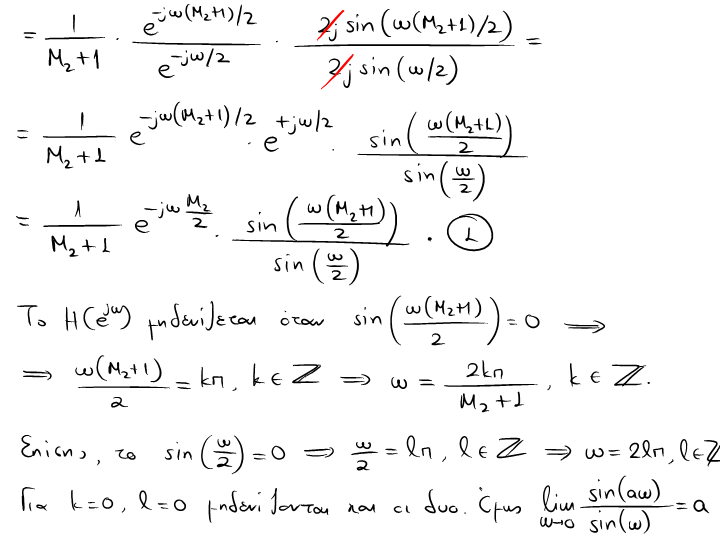 = 1/(M₂+1) · e^(-jω(M₂+1)/2)/e^(-jω/2) · 2j sin(ω(M₂+1)/2)/2j sin(ω/2) =
= 1/(M₂+1) e^(-jω(M₂+1)/2) · e^(+jω/2) · sin(ω(M₂+1)/2)/sin(ω/2)
= 1/(M₂+1) e^(-jω M₂/2) · sin(ω(M₂+1)/2)/sin(ω/2) · ①
Το H(e^jω) μηδενίζεται όταν sin(ω(M₂+1)/2) = 0 ⟹
⟹ ω(M₂+1)/2 = kπ, k ∈ ℤ ⟹ ω = 2kπ/(M₂+1), k ∈ ℤ.
Επίσης, το sin(ω/2) = 0 ⟹ ω/2 = lπ, l ∈ ℤ ⟹ ω = 2lπ, l ∈ ℤ
Για k=0, l=0 μηδενίζονται και οι δυο. Όμως lim ω→0 sin(aω)/sin(ω) = a